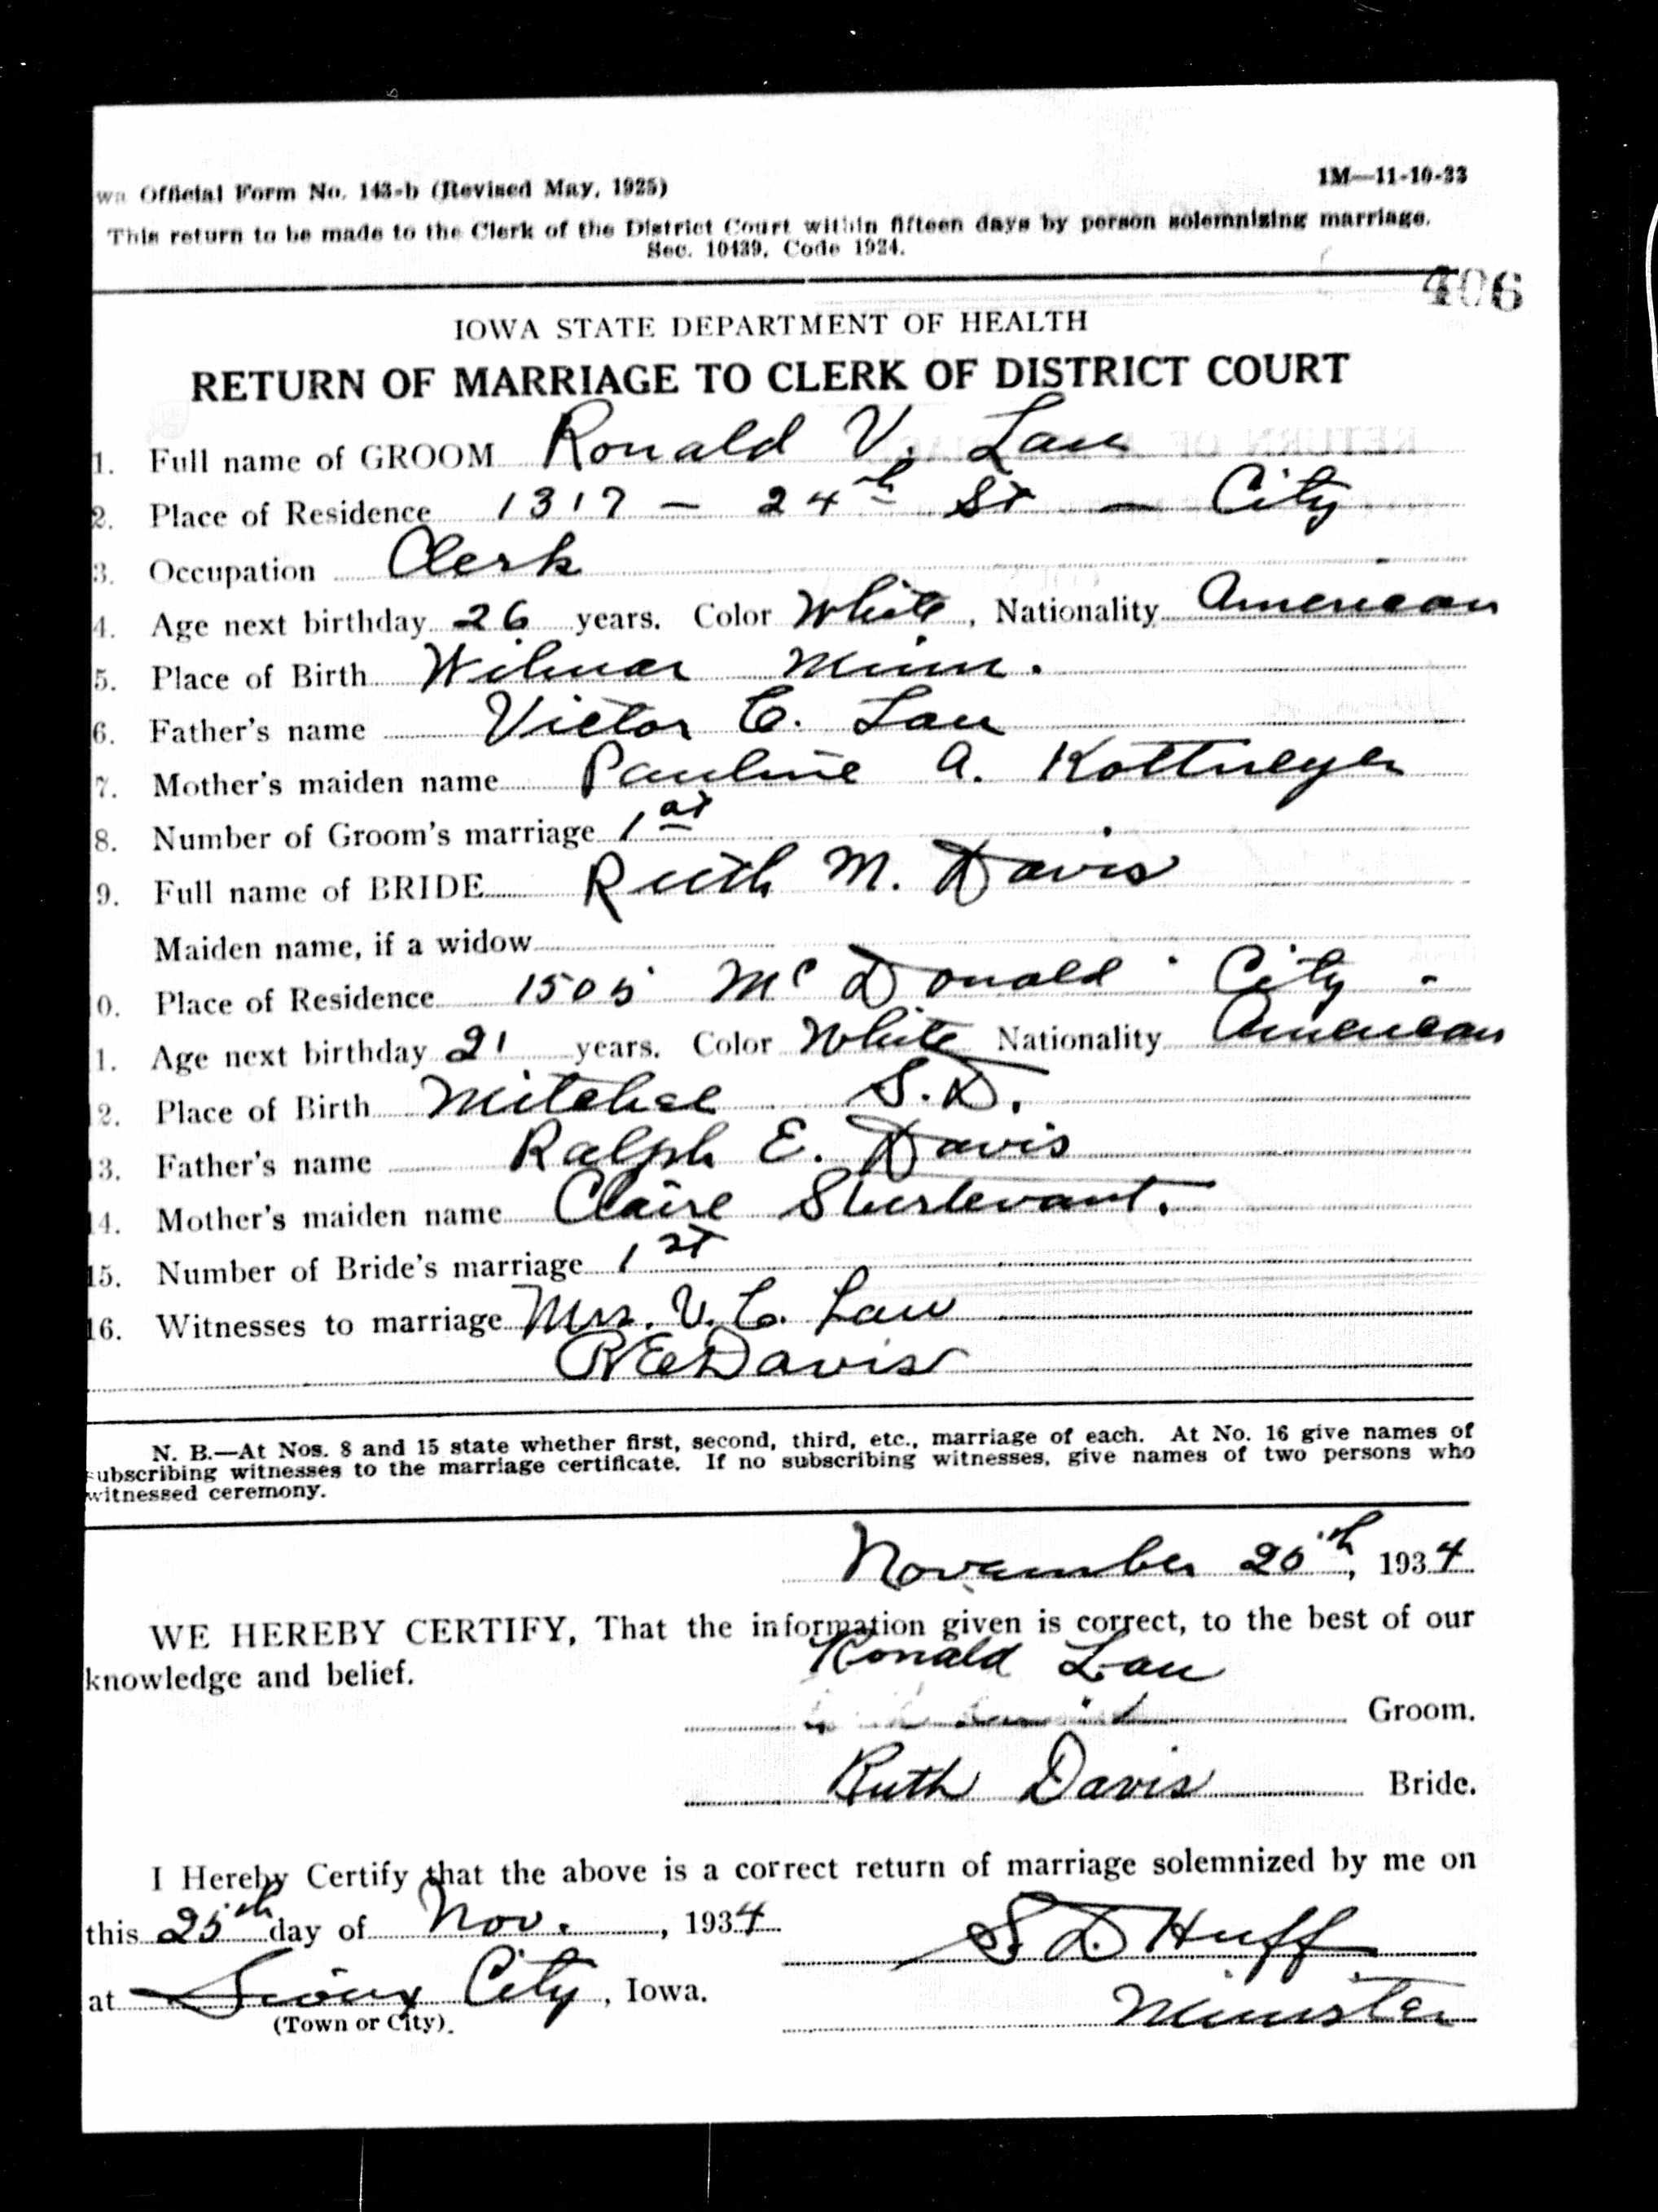 wa Official Form No. 143-b (Revised May, 1925) 1M—11-10-33
This return to be made to the Clerk of the District Court within fifteen days by person solemnizing marriage.
Sec. 10439, Code 1924.
406
IOWA STATE DEPARTMENT OF HEALTH
RETURN OF MARRIAGE TO CLERK OF DISTRICT COURT
1. Full name of GROOM Ronald V. Lau
2. Place of Residence 1317 — 24th St — City
3. Occupation Clerk
4. Age next birthday 26 years. Color White, Nationality American
5. Place of Birth Wilmar Minn.
6. Father's name Victor C. Lau
7. Mother's maiden name Pauline A. Kottmeyer
8. Number of Groom's marriage 1st
9. Full name of BRIDE Ruth M. Davis
Maiden name, if a widow
0. Place of Residence 1505 McDonald City
1. Age next birthday 21 years. Color White Nationality American
2. Place of Birth Mitchel S.D.
13. Father's name Ralph E. Davis
14. Mother's maiden name Claire Sturtevant.
15. Number of Bride's marriage 1st
16. Witnesses to marriage Mrs. V. C. Lau
R E Davis
N. B.—At Nos. 8 and 15 state whether first, second, third, etc., marriage of each. At No. 16 give names of
subscribing witnesses to the marriage certificate. If no subscribing witnesses, give names of two persons who
witnessed ceremony.
November 25th, 1934
WE HEREBY CERTIFY, That the information given is correct, to the best of our
knowledge and belief.
Ronald Lau
Groom.
Ruth Davis Bride.
I Hereby Certify that the above is a correct return of marriage solemnized by me on
this 25th day of Nov., 1934
S. D. Huff
at Sioux City, Iowa.
Minister
(Town or City).